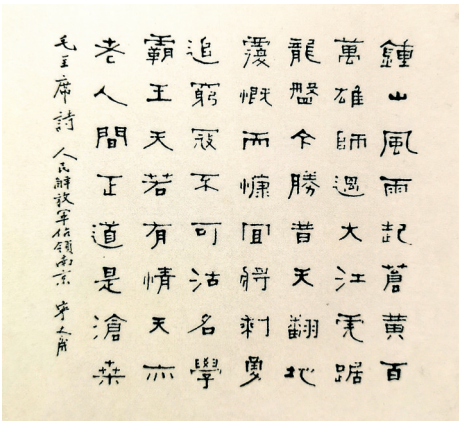 鍾山風雨起蒼黃百
萬雄師過大江虎踞
龍盤今勝昔天翻地
覆慨而慷宜將剩勇
追窮寇不可沽名學
霸王天若有情天亦
老人間正道是滄桑
毛主席詩 人民解放軍佔領南京